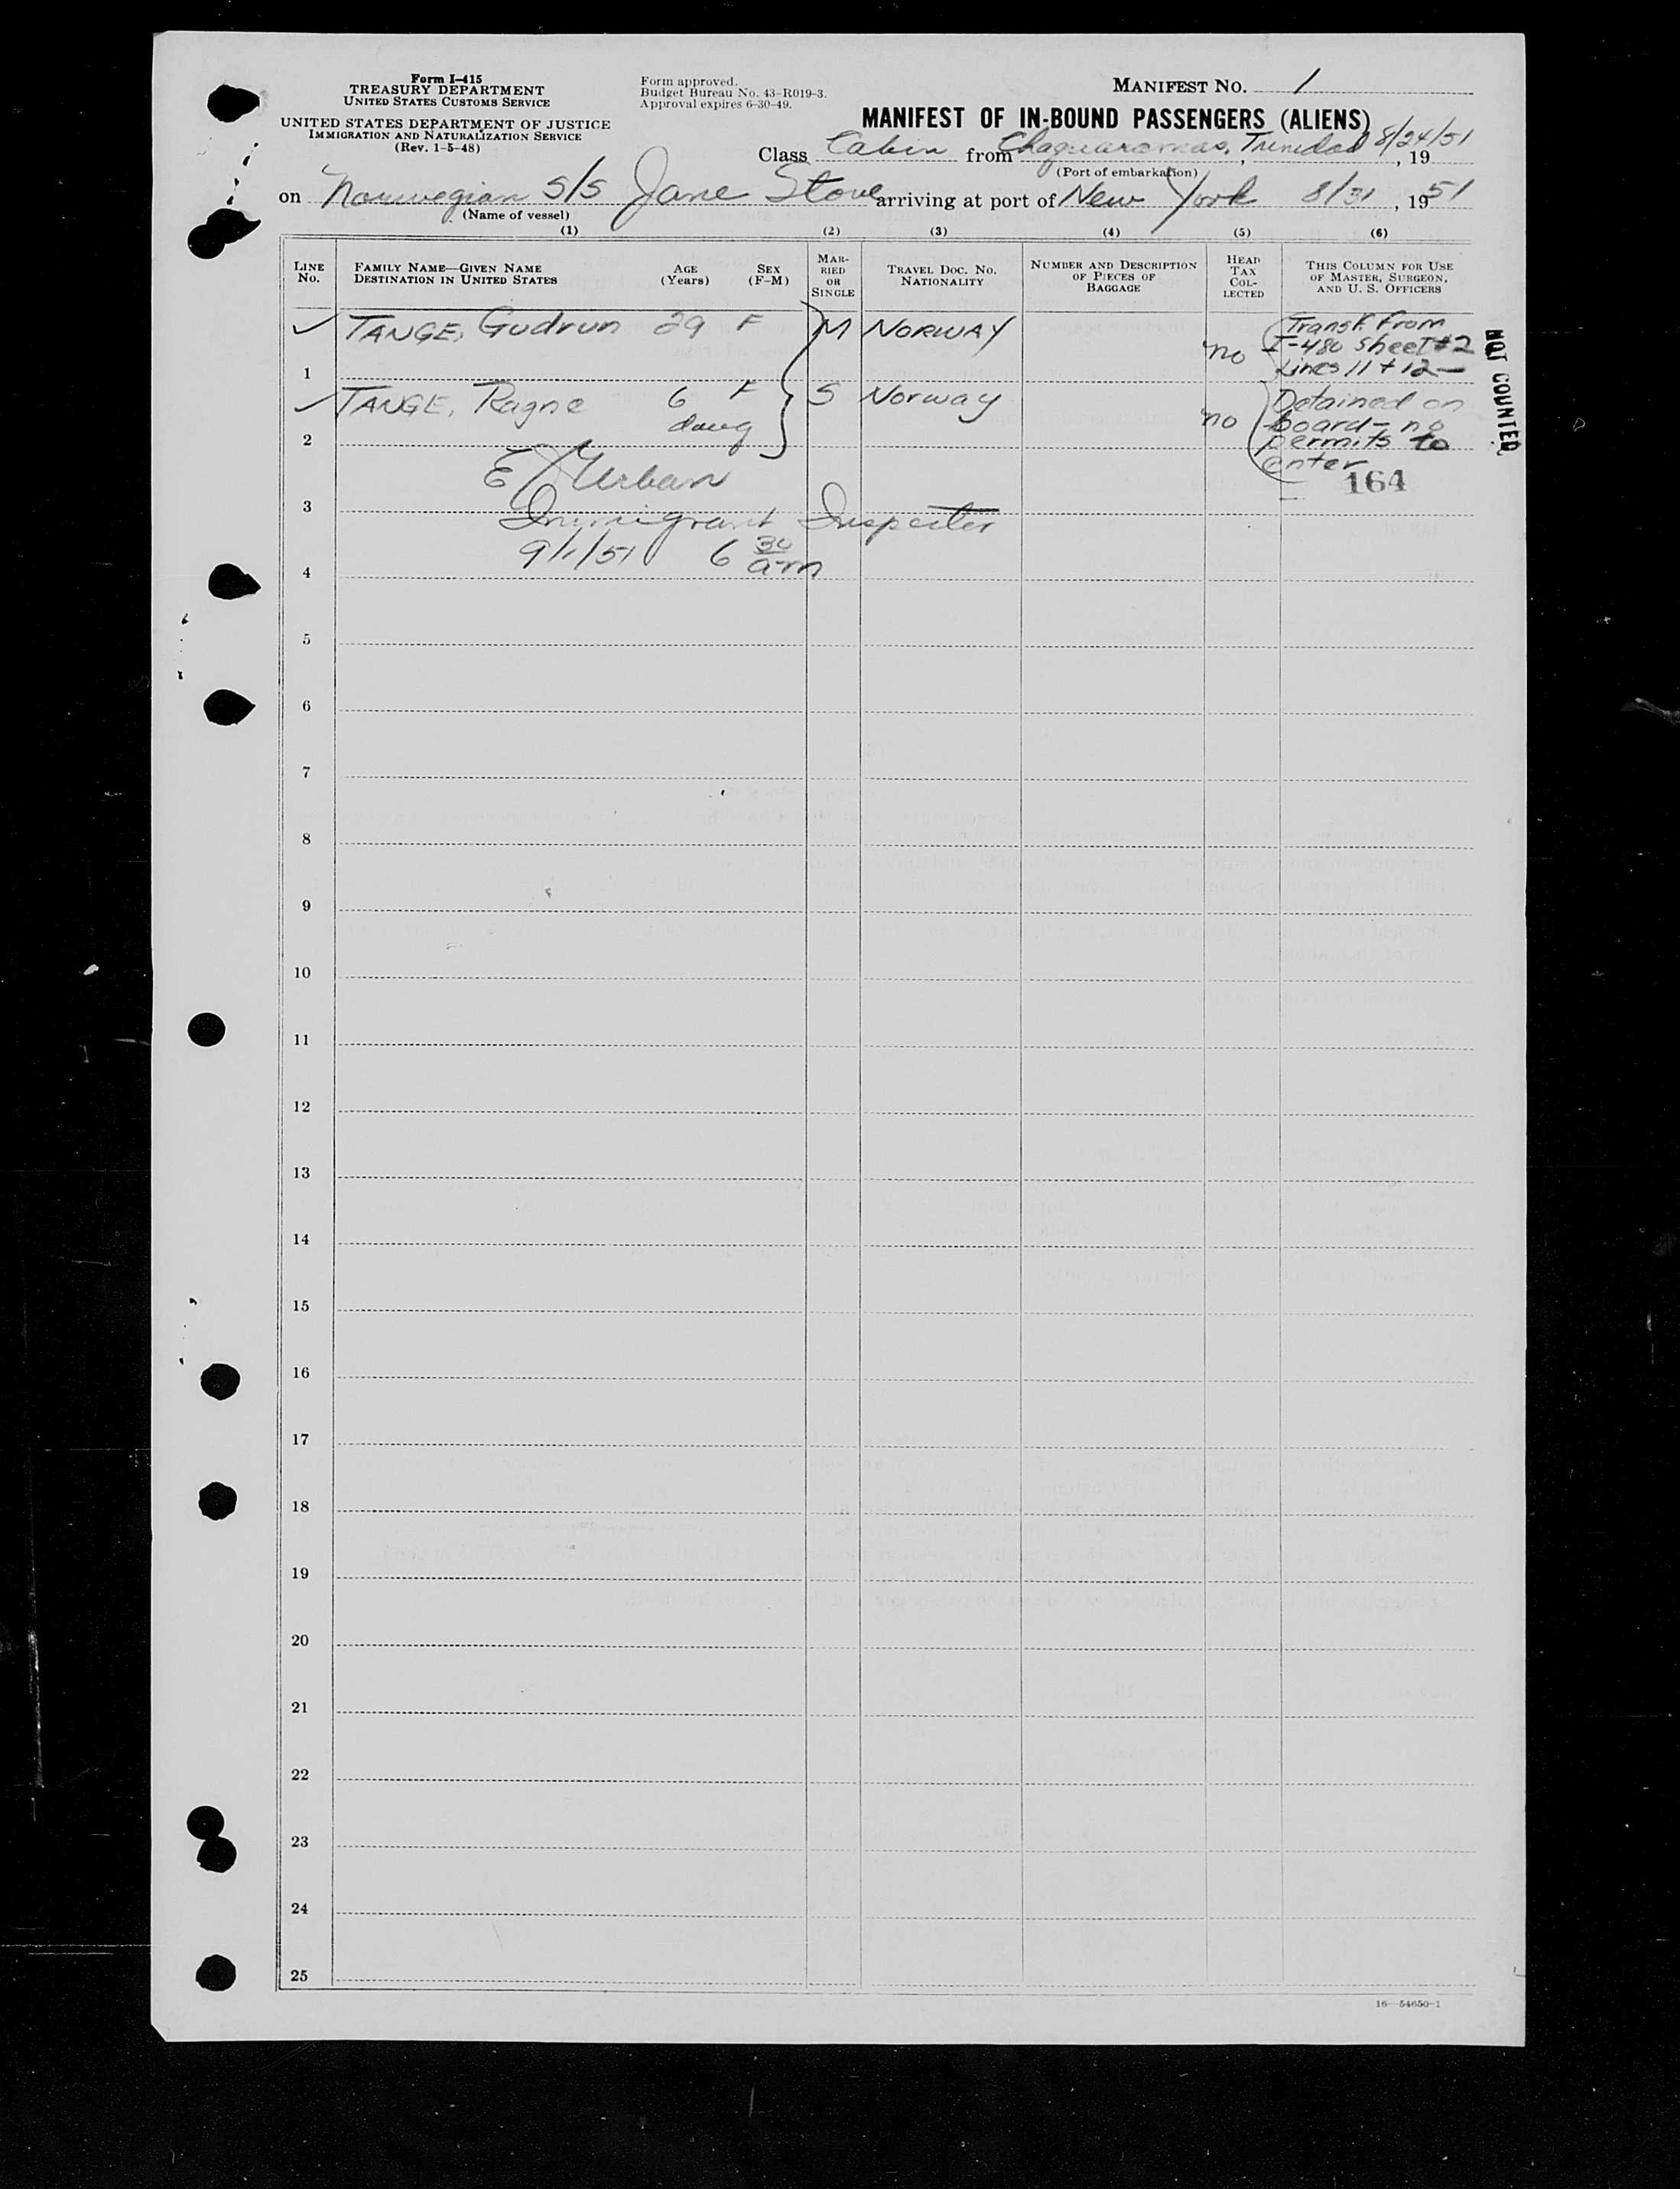 Form I-415
TREASURY DEPARTMENT
UNITED STATES CUSTOMS SERVICE
UNITED STATES DEPARTMENT OF JUSTICE
IMMIGRATION AND NATURALIZATION SERVICE
(Rev. 1-5-48)
Form approved.
Budget Bureau No. 43-R019-3.
Approval expires 6-30-49.
MANIFEST NO. 1
MANIFEST OF IN-BOUND PASSENGERS (ALIENS)
Class Cabin from Chaguaramas, Trinidad 8/24/51, 19
(Port of embarkation)
on Norwegian S/S Jane Stove arriving at port of New York 8/31, 1951
(Name of vessel)
(1) (2) (3) (4) (5) (6)
LINE NO.
FAMILY NAME—GIVEN NAME
DESTINATION IN UNITED STATES
AGE (Years)
SEX (F-M)
MARRIED OR SINGLE
TRAVEL DOC. NO.
NATIONALITY
NUMBER AND DESCRIPTION OF PIECES OF BAGGAGE
HEAD TAX COLLECTED
THIS COLUMN FOR USE OF MASTER, SURGEON, AND U. S. OFFICERS
1 TANGE, Gudrun 29 F M NORWAY no
Transf. from
I-480 sheet #2
Lines 11 + 12
2 TANGE, Ragne 6 F S Norway no
daug
Detained on
board - no
permits to
enter
164
NOT COUNTED
E Urban
3 Immigrant Inspector
4 9/1/51 6 30 am
5
6
7
8
9
10
11
12
13
14
15
16
17
18
19
20
21
22
23
24
25
16—54650-1